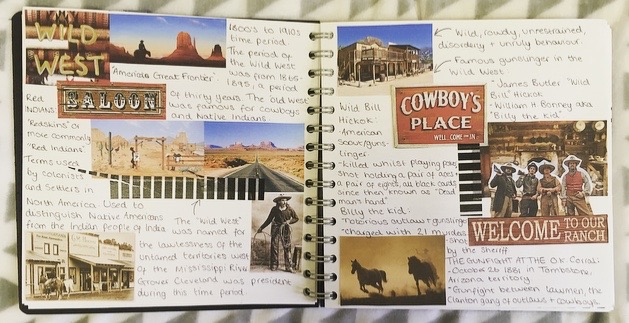 WILD
WEST
"America's Great Frontier"
1800's to 1910s
time period.
The period of
the Wild West
was from 1865-
1895, a period
of thirty years. The old West
was famous for cowboys
and Native Indians
SALOON
Red
INDIANS:
"Redskins" or
more commonly
"Red Indians"
Terms used
by colonists
and Settlers in
North America Used to
distinguish Native Americans
from the Indian people of India
The "Wild West"
was named for
the lawlessness of the
untamed territories west
of the Mississippi River
Grover Cleveland was president
during this time period.
Wild, rowdy, unrestrained,
disorderly + unruly behaviour.
Famous gunslinger in the
Wild West
- James Butler "Wild
Bill" Hickok
- William H Bonney aka
"Billy the Kid"
COWBOY'S
PLACE
WELL COME ON IN
Wild Bill
Hickok
American
Scout/guns-
linger.
Killed whilst playing poker
shot holding a pair of aces +
a pair of eights, all black cards
since then known as "Dead
man's hand"
Billy the Kid:
Notorious outlaw + gunslinger
charged with 21 murders
shot
by the Sheriff.
WELCOME TO OUR
RANCH
THE GUNFIGHT AT THE O.K Corral:
- October 26 1881 in Tombstone,
Arizona territory
Gunfight between lawmen, the
Clanton gang of outlaws + cowboys.